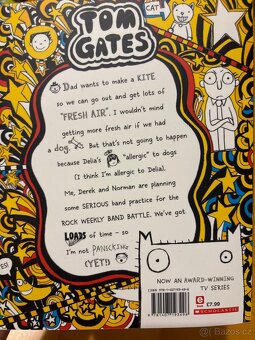 TOM
GATES
CAT
DAD wants to make a KITE
so we can go out and get lots of
"FRESH AIR". I wouldn't mind
getting more fresh air if we had
a dog. But that's not going to happen
because Delia's "allergic" to dogs
(I think I'm allergic to Delia).
Me, Derek and Norman are planning
some SERIOUS band practice for the
ROCK WEEKLY BAND BATTLE. We've got
LOADS of time - so
I'm not PANICKING
(YET!)
NOW AN AWARD-WINNING
TV SERIES
£7.99
SCHOLASTIC
Bazos.cz